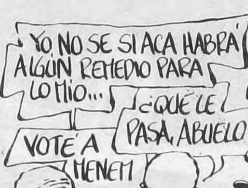 YO, NO SE SI ACA HABRÁ
ALGÚN REMEDIO PARA
LO MIO...
¿QUÉ LE
PASA, ABUELO
VOTÉ A
MENEM